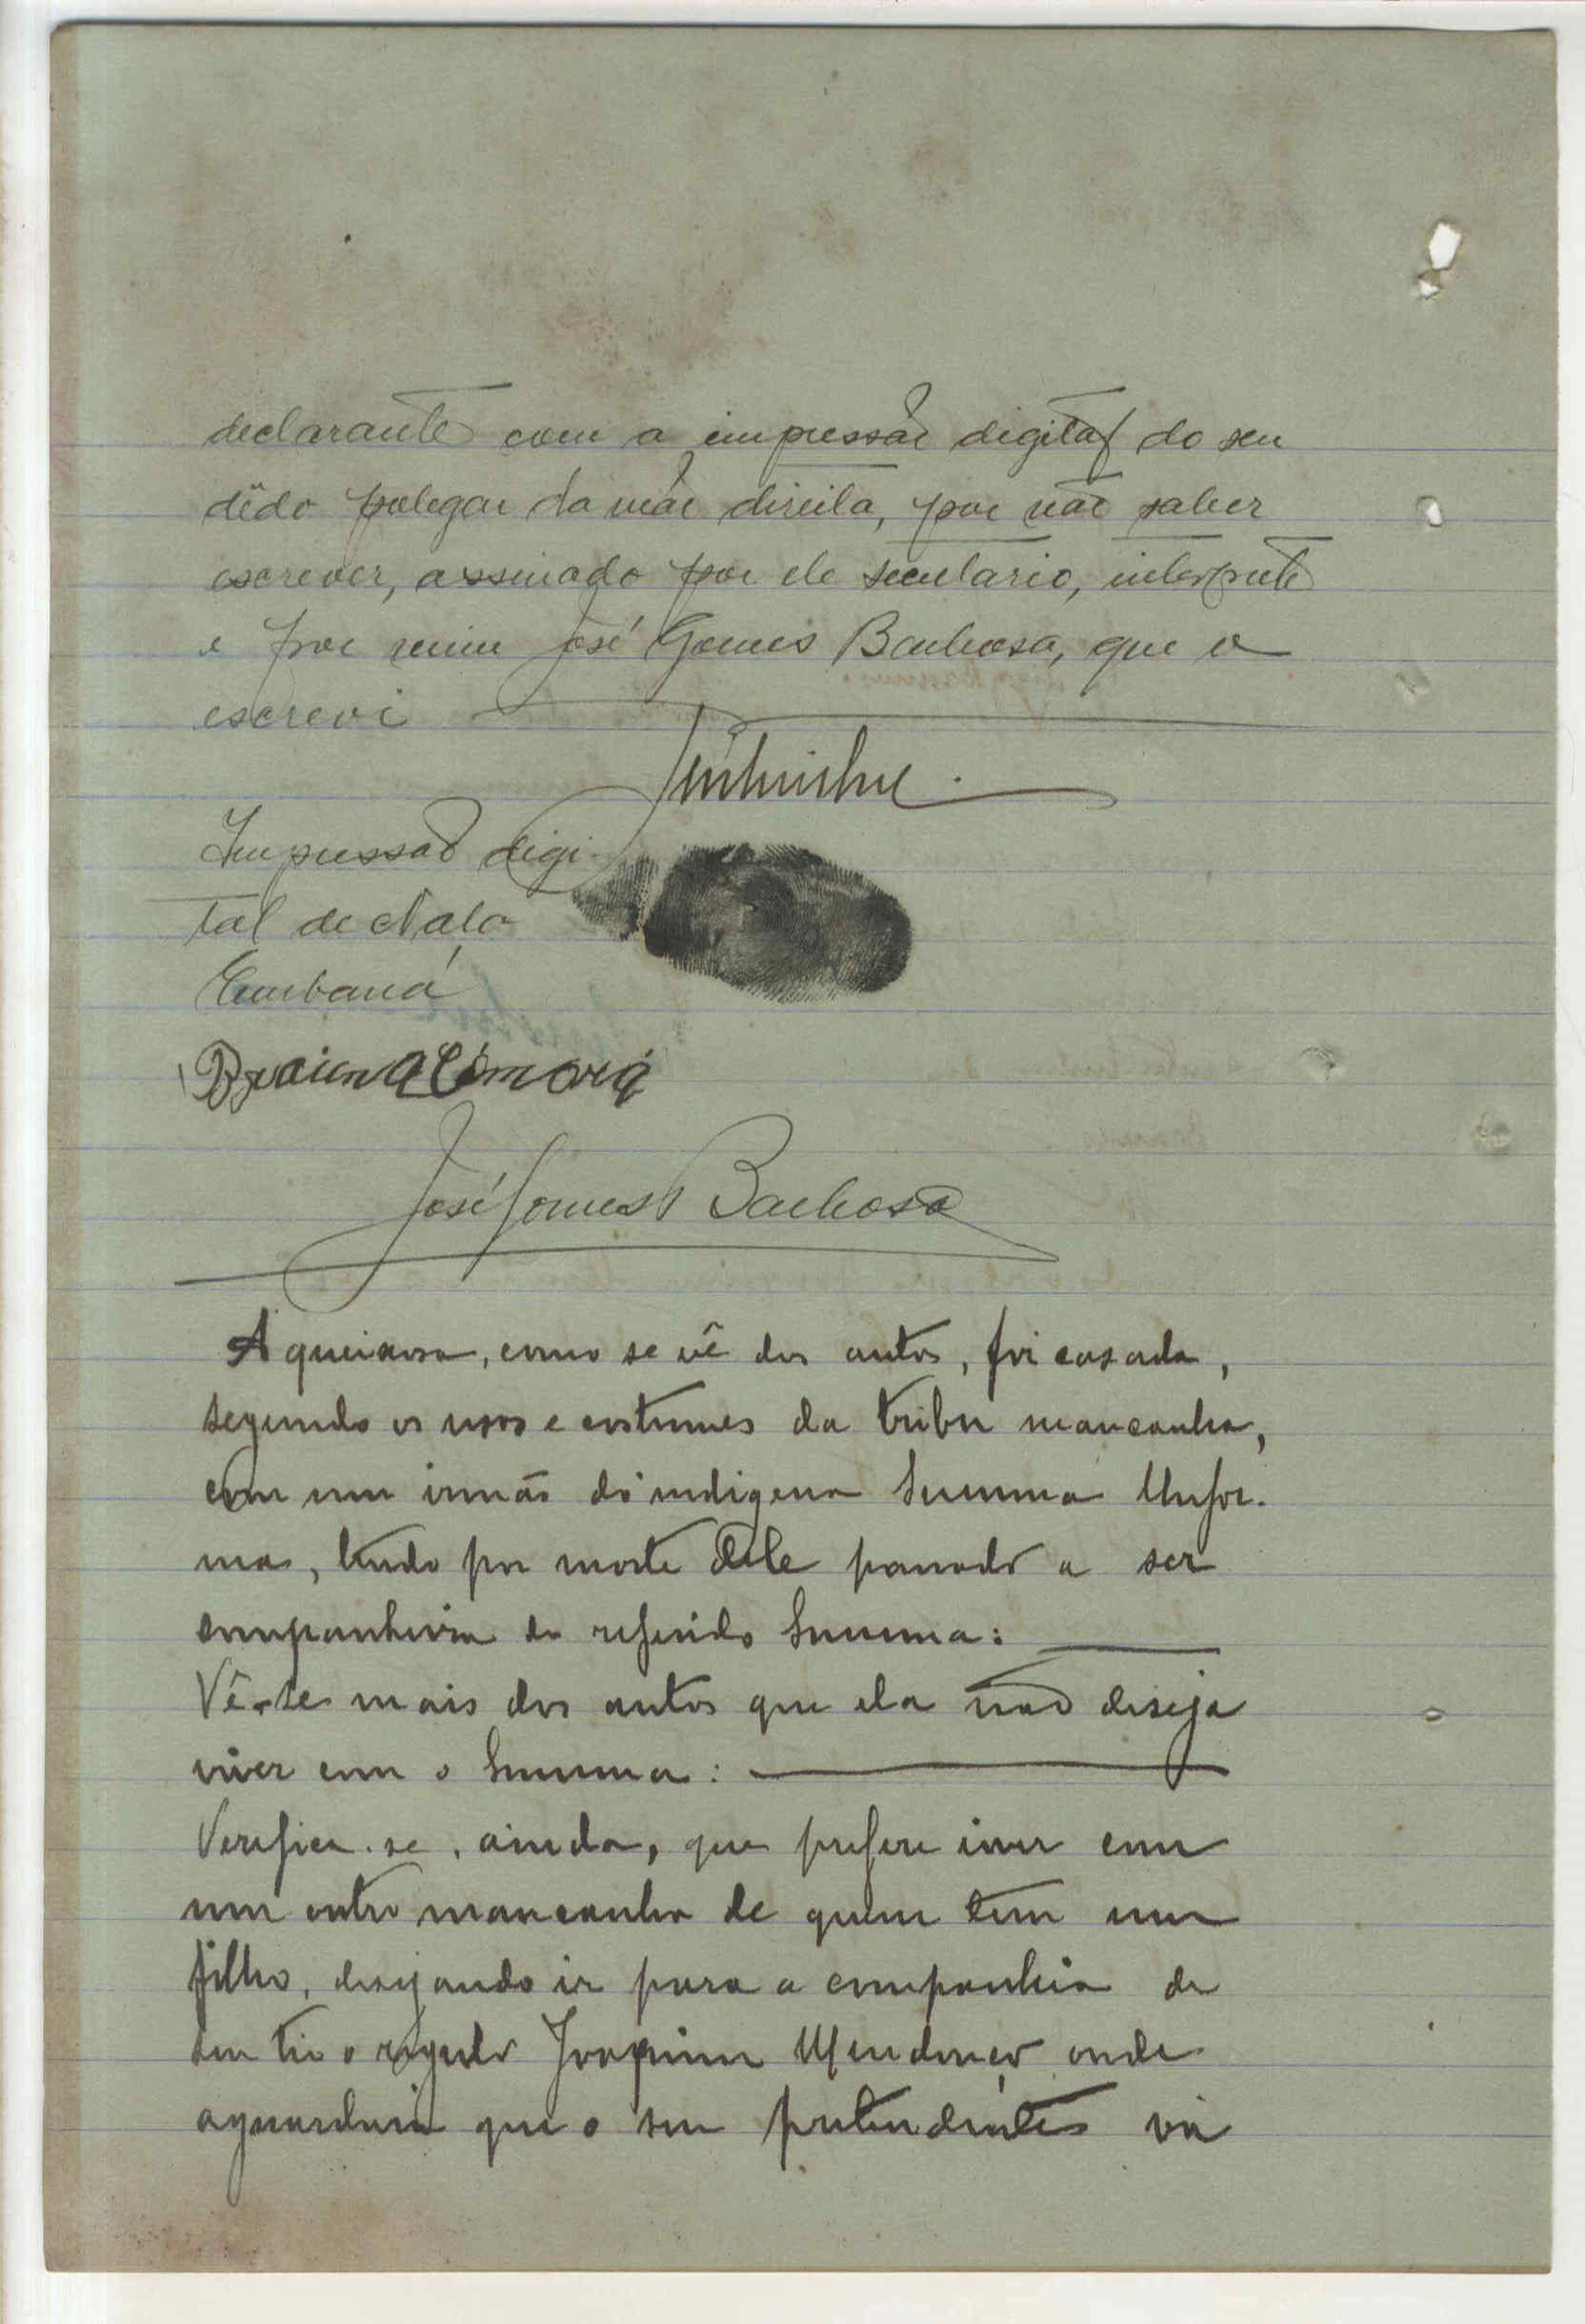 declarante com a impressão digital do seu
dêdo polegar da mão direita, por não saber
escrever, assinado por ele secretario, interprete
e por mim José Gomes Barbosa, que o
escrevi
Impressão digi-
tal de Nala
Embaná
José Gomes Barbosa
A queixosa, como se vê dos autos, foi casada,
segundo os usos e costumes da tribu mancanha,
com um irmão do indigena Summa Unfor-
ma, tendo por morte dele passado a ser
companheira do referido Summa:
Vê-se mais dos autos que ela não deseja
viver com o Summa:
Verifica-se, ainda, que prefere viver com
um outro mancanha de quem tem um
filho, desejando ir para a companhia de
seu tio o regulo Joaquim Mendonça onde
aguardará que o seu pretendente vá